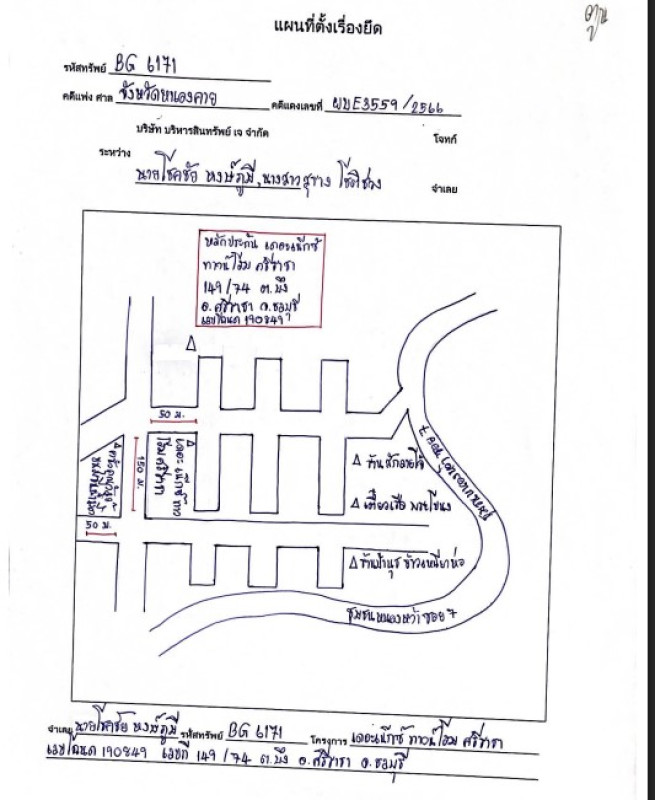 แผนที่ตั้งเรื่องยึด
รหัสทรัพย์ BG 6171
คดีแพ่ง ศาล จังหวัดหนองคาย คดีแดงเลขที่ ผบE3559/2566
บริษัท บริหารสินทรัพย์ เจ จำกัด โจทก์
ระหว่าง
นายโชคชัย หงษ์ภูมี, นางสาวสุชาง จำเลย
หลักประกัน เดอะเน็กซ์
ทาวน์โฮม ศรีราชา
149/74 ต.บึง
อ.ศรีราชา จ.ชลบุรี
เลขโฉนด 190849
50 ม.
150 ม.
เดอะเน็กซ์ทาวน์
โฮมศรีราชา
50 ม.
ร้านสักลายใจ
เตี๋ยวเรือ นายโหนง
ร้านป้านุช ข้าวเหนียวห่อ
ชุมชนหนองหว้า ซอย 7
จำเลย นายโชคชัย หงษ์ภูมี รหัสทรัพย์ BG 6171 โครงการ เดอะเน็กซ์ ทาวน์โฮม ศรีราชา
เลขโฉนด 190849 เลขที่ 149/74 ต.บึง อ.ศรีราชา จ.ชลบุรี